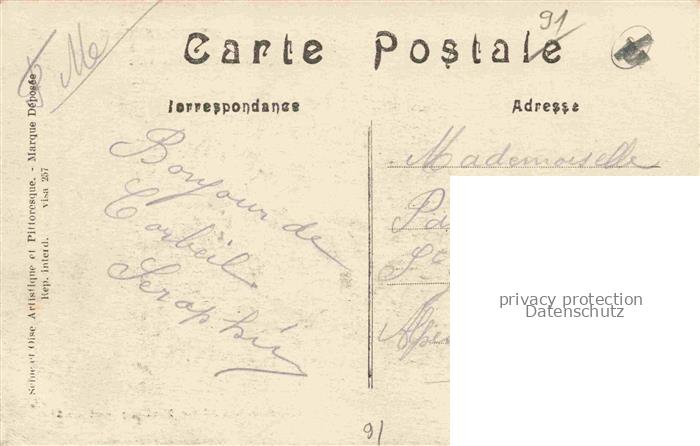 91
Me
Carte Postale
Correspondance
Adresse
Bonjour de
Corbeil
Seraphin
Mademoiselle
Seine et Oise Artistique et Pittoresque. - Marque Déposée
Rep. interd. visa 257
privacy protection
Datenschutz
91